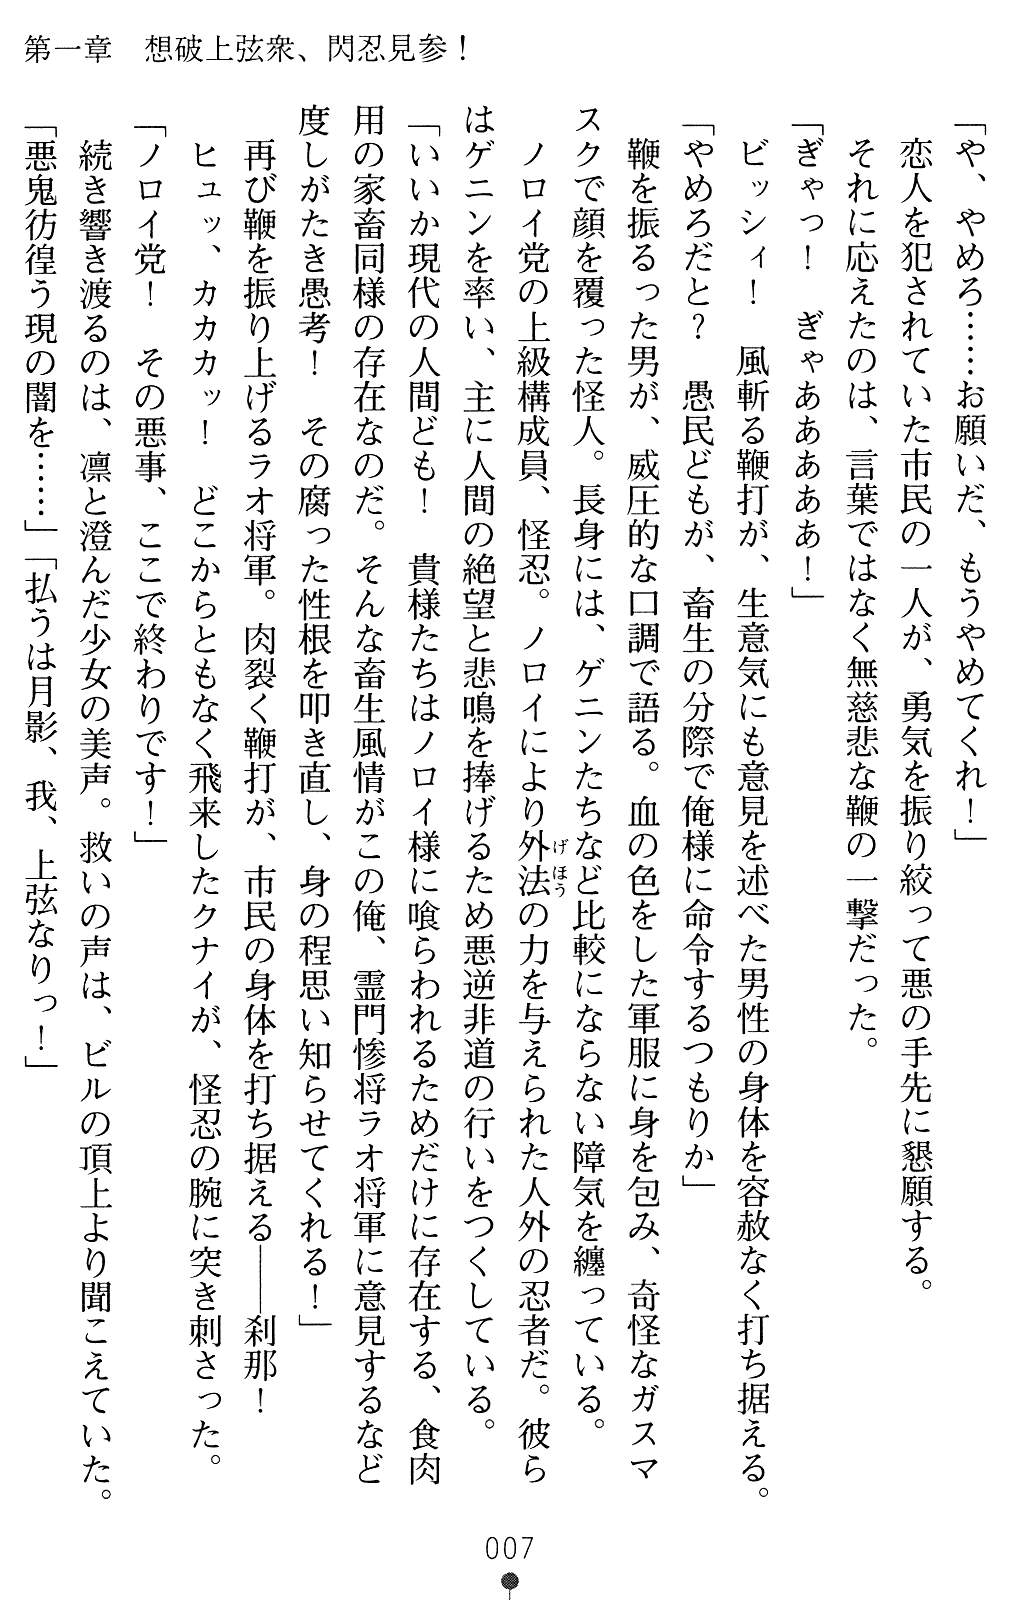 第一章　想破上弦衆、閃忍見参！
「や、やめろ……お願いだ、もうやめてくれ！」
　恋人を犯されていた市民の一人が、勇気を振り絞って悪の手先に懇願する。
　それに応えたのは、言葉ではなく無慈悲な鞭の一撃だった。
「ぎゃっ！　ぎゃああああ！」
　ビッシィ！　風斬る鞭打が、生意気にも意見を述べた男性の身体を容赦なく打ち据える。
「やめろだと？　愚民どもが、畜生の分際で俺様に命令するつもりか」
　鞭を振るった男が、威圧的な口調で語る。血の色をした軍服に身を包み、奇怪なガスマ
スクで顔を覆った怪人。長身には、ゲニンたちなど比較にならない障気を纏っている。
　ノロイ党の上級構成員、怪忍。ノロイにより外法（げほう）の力を与えられた人外の忍者だ。彼ら
はゲニンを率い、主に人間の絶望と悲鳴を捧げるため悪逆非道の行いをつくしている。
「いいか現代の人間ども！　貴様たちはノロイ様に喰らわれるためだけに存在する、食肉
用の家畜同様の存在なのだ。そんな畜生風情がこの俺、霊門惨将ラオ将軍に意見するなど
度しがたき愚考！　その腐った性根を叩き直し、身の程思い知らせてくれる！」
　再び鞭を振り上げるラオ将軍。肉裂く鞭打が、市民の身体を打ち据える――刹那！
　ヒュッ、カカカッ！　どこからともなく飛来したクナイが、怪忍の腕に突き刺さった。
「ノロイ党！　その悪事、ここで終わりです！」
　続き響き渡るのは、凛と澄んだ少女の美声。救いの声は、ビルの頂上より聞こえていた。
「悪鬼彷徨う現の闇を……」「払うは月影、我、上弦なりっ！」
007